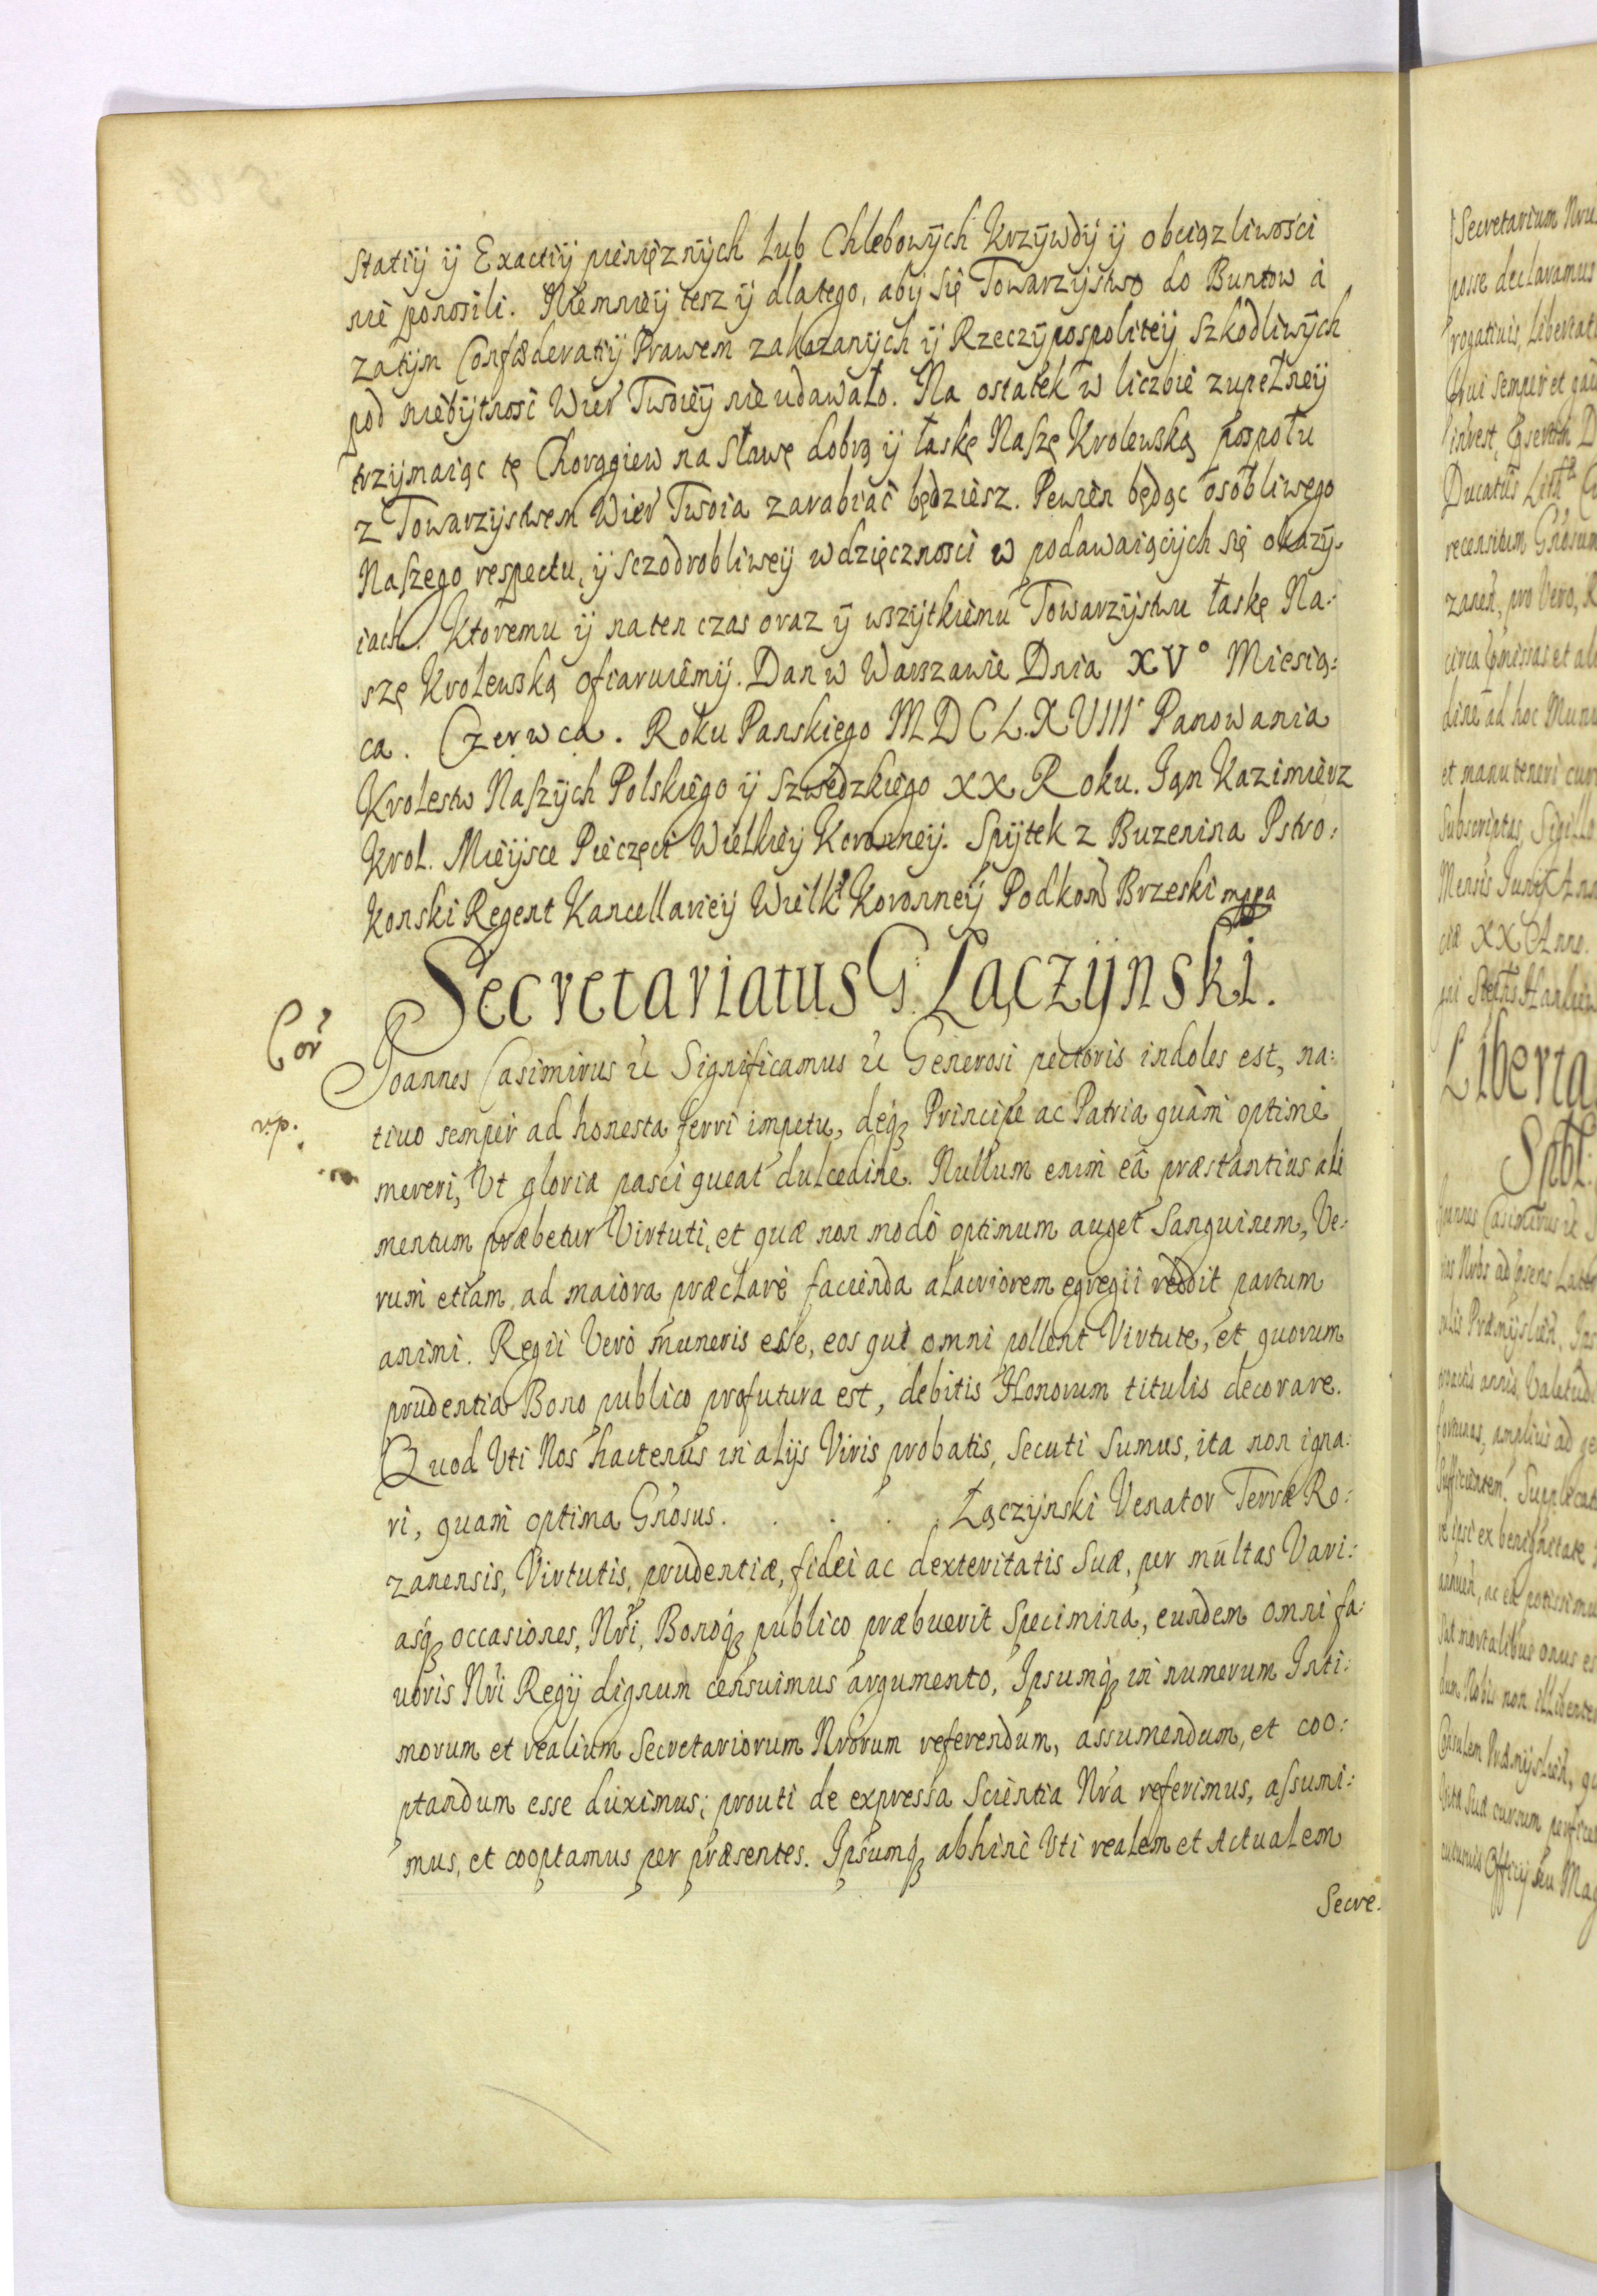 Statij ij Exactij pieniężnijch Lub Chlebowijch Krzijwdij ij obciążliwości
nie ponosili. Niemnieij tesz ij dlatego, abij się Towarzijstwo do Buntow á
zatijm Confæderatij Prawem zakazanijch ij Rzeczijpospoliteij szkodliwijch
pod niebijtność Wier Twoieij nie udawało. Na ostatek w liczbie zupełneij
trzijmaiąc tę Chorągiew na sławę dobrą ij łaskę Naszę Krolewską pospołu
z Towarzijstwem Wier Twoia zarabiać będziesz. Pewien będąc osobliwego
Naszego respectu, ij sczodrobliweij wdzięcznosci w podawaiącijch się okazij-
iach. Ktoremu ij na ten czas oraz ij wszijtkiemu Towarzijstwu łaskę Na:
szę Krolewską ofiaruiemij. Dan w Warszawie Dnia XV° Miesią:
ca. Czerwca. Roku Panskiego MDCLXVIII Panowania
Krolestw Naszijch Polskiego ij Szwedzkiego XX Roku. Jan Kazimierz
Krol. Mieijsce Pieczęci Wielkieij Koronneij. Spijtek z Buzenina Pstro:
konski Regent Kancellarieij Wielk: Koronneij Podkom Brzeski mppa
Secretariatus G: Łączijnski.
Cor
Joannes Casimirus &c Significamus &c Generosi pectoris indoles est, na:
v.p.
tiuo semper ad honesta ferri impetu, deq3 Principe ac Patria quàm optimè
mereri, Vt gloria pasci queat dulcedine. Nullum enim eâ præstantius ali
mentum præbetur Virtuti, et quæ non modò optimum auget Sanguinem, Ve:
rum etiam, ad maiora præclarè facienda alacriorem egregii reddit partum
animi. Regii Verò muneris esse, eos qui omni pollent Virtute, et quorum
prudentia Bono publico profutura est, debitis Honorum titulis decorare.
Quod Vti Nos hactenus in alijs Viris probatis, Secuti Sumus, ita non igna:
ri, quam optima Gnosus. . . . . Łączijnski Venator Terræ Ro:
zanensis, Virtutis, prudentiæ, fidei ac dexteritatis Suæ, per multas Vari:
asq3 occasiones, Nri, Bonoq3 publico præbuerit Specimina, eundem omni fa:
uoris Nri Regij dignum censuimus argumento, Ipsumq3 in numerum Inti:
morum et realium Secretariorum Nrorum referendum, assumendum, et coo:
ptandum esse duximus; prouti de expressa Scientia Nra referimus, assumi:
mus, et cooptamus per præsentes. Ipsumq3 abhinc Vti realem et Actualem
Secre.
Secretarium
posse declaramus
rogatiuis, Libertat
frui semper et
Ducatus Lith
zanen, pro Vero,
dine ad hoc
et manuteneri cur
Subscriptas, Sigillo
Mensis Junij
XX Anno.
Liberta
Spbl:
Joannes Casimirus &c